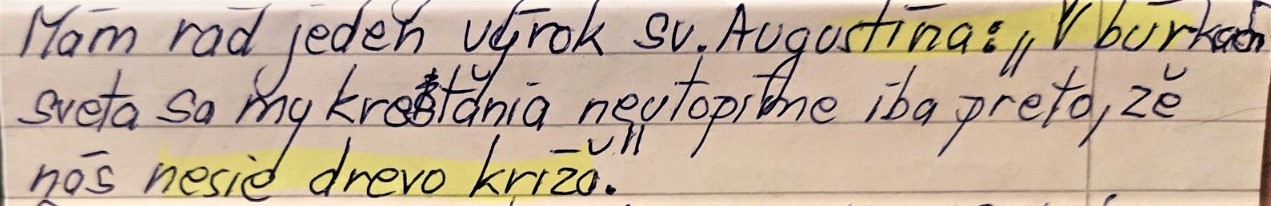 Mám rád jeden výrok sv. Augustína: „V búrkach
sveta sa my kresťania neutopíme iba preto, že
nás nesie drevo kríža."